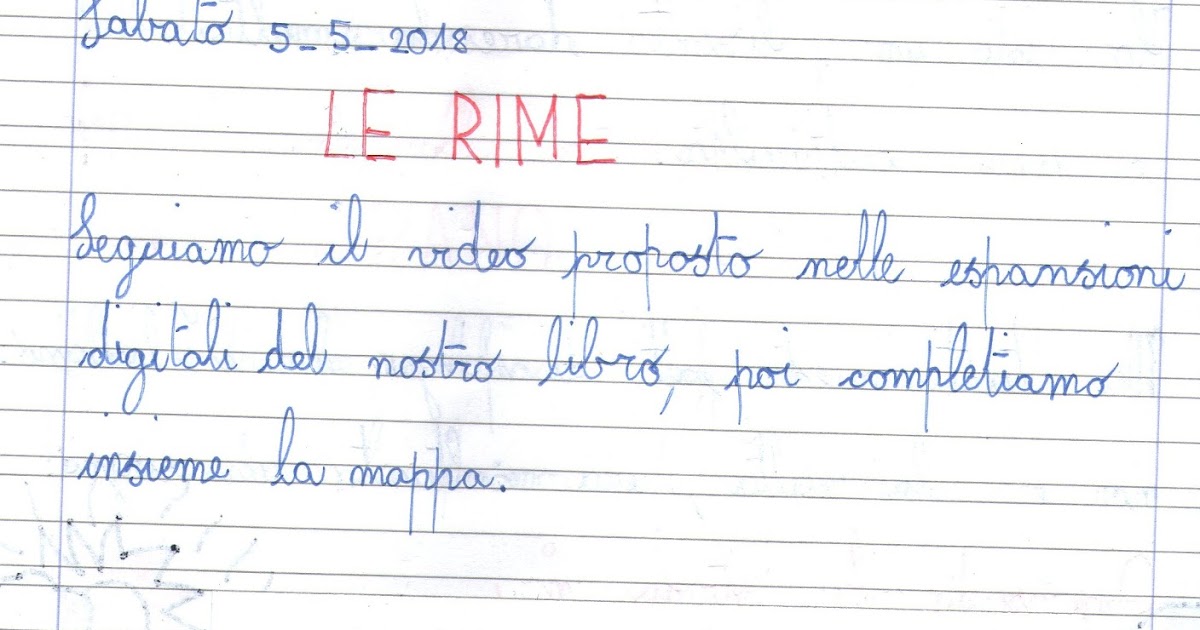 Sabato 5-5-2018
LE RIME
Seguiamo il video proposto nelle espansioni
digitali del nostro libro, poi completiamo
insieme la mappa.